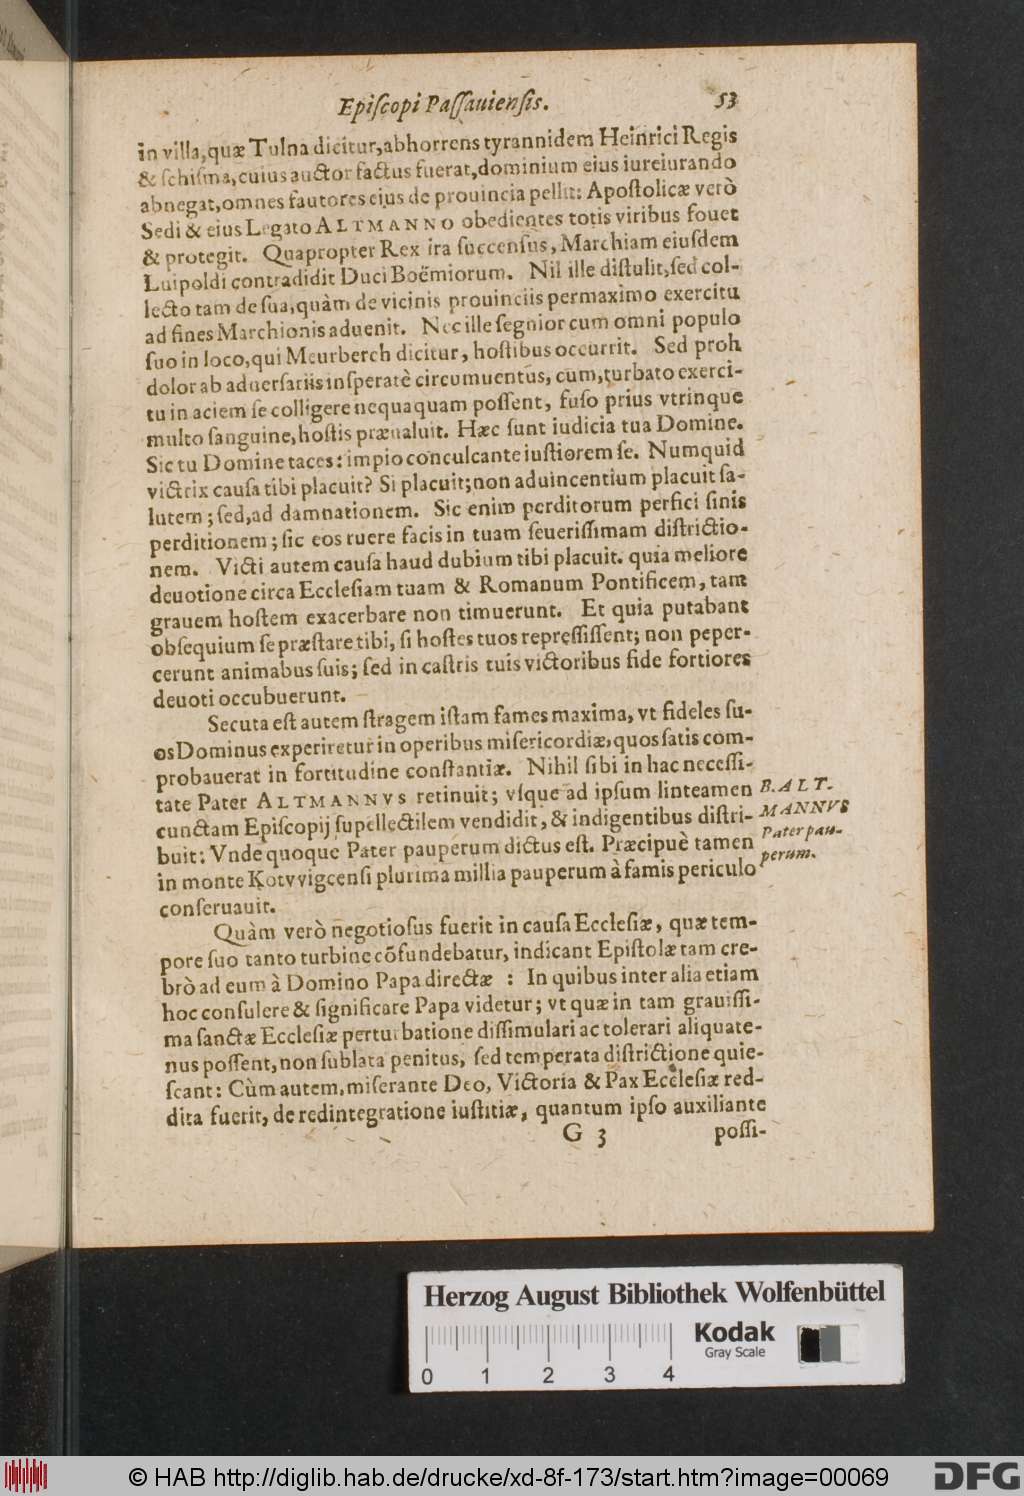 Epiſcopi Paſſauienſis. 53
in villa, quæ Tulna dicitur, abhorrens tyrannidem Heinrici Regis
& ſchiſma, cuius auctor factus fuerat, dominium eius iureiurando
abnegat, omnes fautores eius de prouincia pellit: Apoſtolicæ verò
Sedi & eius Legato ALTMANNO obedientes totis viribus fouet
& protegit. Quapropter Rex ira ſuccenſus, Marchiam eiuſdem
Luipoldi contradidit Duci Boëmiorum. Nil ille diſtulit, ſed col-
lecto tam de ſua, quàm de vicinis prouinciis permaximo exercitu
ad fines Marchionis aduenit. Nec ille ſegnior cum omni populo
ſuo in loco, qui Meurberch dicitur, hoſtibus occurrit. Sed proh
dolor ab aduerſariis inſperatè circumuentus, cum, turbato exerci-
tu in aciem ſe colligere nequaquam poſſent, fuſo prius vtrinque
multo ſanguine, hoſtis præualuit. Hæc ſunt iudicia tua Domine.
Sic tu Domine taces: impio conculcante iuſtiorem ſe. Numquid
victrix cauſa tibi placuit? Si placuit; non ad uincentium placuit ſa-
lutem; ſed, ad damnationem. Sic enim perditorum perfici ſinis
perditionem; ſic eos ruere facis in tuam ſeueriſſimam diſtrictio-
nem. Victi autem cauſa haud dubium tibi placuit. quia meliore
deuotione circa Eccleſiam tuam & Romanum Pontificem, tam
grauem hoſtem exacerbare non timuerunt. Et quia putabant
obſequium ſe præſtare tibi, ſi hoſtes tuos repreſſiſſent; non peper-
cerunt animabus ſuis; ſed in caſtris tuis victoribus fide fortiores
deuoti occubuerunt.
Secuta eſt autem ſtragem iſtam fames maxima, vt fideles ſu-
os Dominus experiretur in operibus miſericordiæ, quos ſatis com-
probauerat in fortitudine conſtantiæ. Nihil ſibi in hac neceſſi-
tate Pater ALTMANNVS retinuit; vſque ad ipſum linteamen
cunctam Epiſcopij ſupellectilem vendidit, & indigentibus diſtri-
buit: Vnde quoque Pater pauperum dictus eſt. Præcipuè tamen
in monte Kotvvigcenſi plurima millia pauperum à famis periculo
conſeruauit.
B. ALT-
MANNVS
Pater pau-
perum.
Quàm verò negotioſus fuerit in cauſa Eccleſiæ, quæ tem-
pore ſuo tanto turbine cōfundebatur, indicant Epiſtolæ tam cre-
brò ad eum à Domino Papa directæ : In quibus inter alia etiam
hoc conſulere & ſignificare Papa videtur; vt quæ in tam grauiſſi-
ma ſanctæ Eccleſiæ perturbatione diſſimulari ac tolerari aliquate-
nus poſſent, non ſublata penitus, ſed temperata diſtrictione quie-
ſcant: Cùm autem, miſerante Deo, Victoria & Pax Eccleſiæ red-
dita fuerit, de redintegratione iuſtitiæ, quantum ipſo auxiliante
G 3 poſſi-
Herzog August Bibliothek Wolfenbüttel
Kodak
Gray Scale
0 1 2 3 4
© HAB http://diglib.hab.de/drucke/xd-8f-173/start.htm?image=00069
DFG